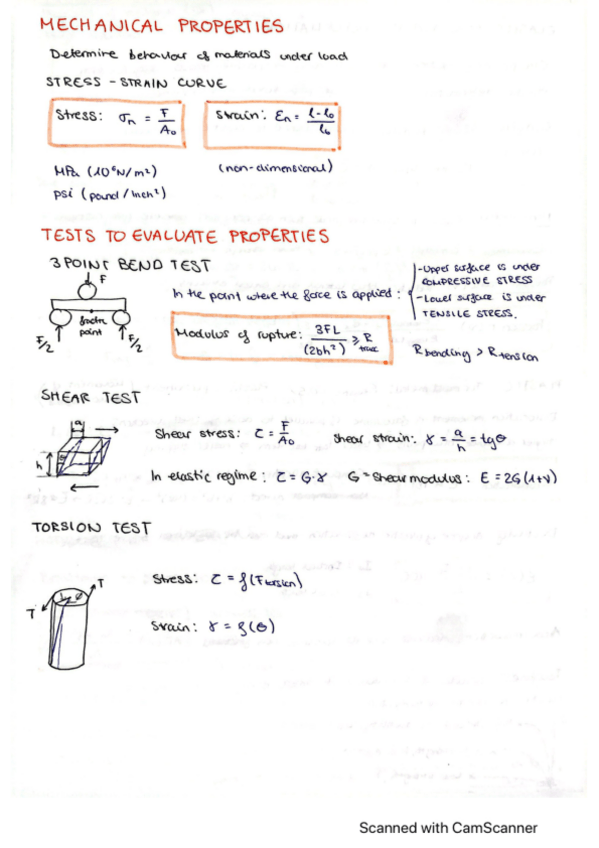 MECHANICAL PROPERTIES
Determine behaviour of materials under load
STRESS - STRAIN CURVE
Stress: σn = F/A₀
Strain: Ɛn = l-l₀/l₀
MPa (10⁶N/m²)
(non-dimensional)
psi (pound/inch²)
TESTS TO EVALUATE PROPERTIES
3 POINT BEND TEST
F
fractr.
point
F/2
F/2
In the point where the force is applied:
-Upper surface is under
COMPRESSIVE STRESS
-Lower surface is under
TENSILE STRESS.
Modulus of rupture: 3FL/(2bh²) ≥ R trac
Rbending > Rtension
SHEAR TEST
a
h
θ
Shear stress: τ = F/A₀
Shear strain: γ = a/h = tgθ
In elastic regime: τ = G·γ
G = Shear modulus: E = 2G(1+ν)
TORSION TEST
T
T
Stress: τ = f(Ftorsion)
Strain: γ = f(θ)
Scanned with CamScanner